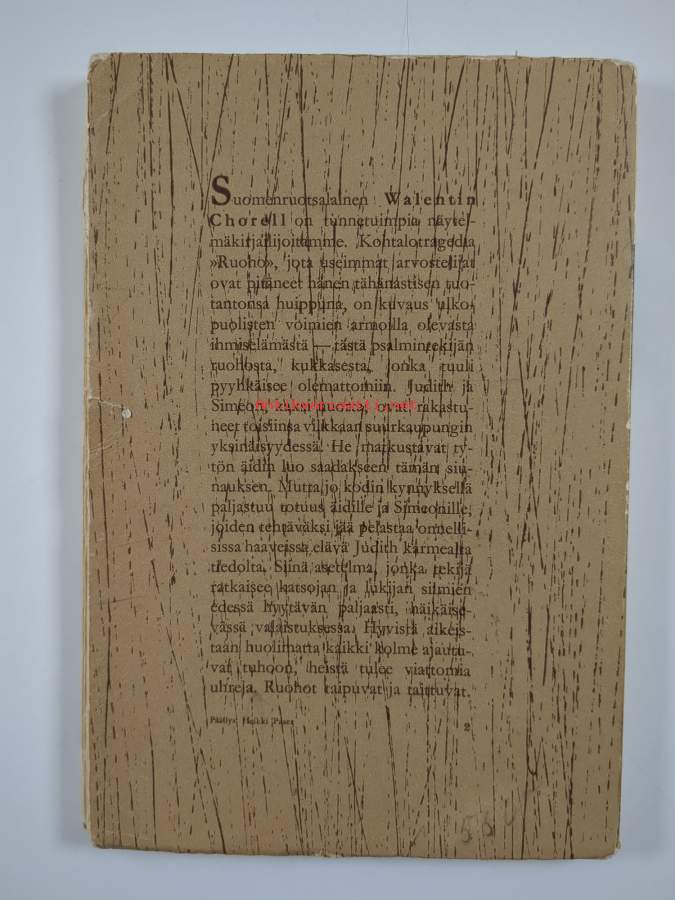 Suomenruotsalainen Walentin
Chorell on tunnetuimpia näytel-
mäkirjailijoitamme. Kohtalotragedia
»Ruoho», jota useimmat arvostelijat
ovat pitäneet hänen tähänastisen tuo-
tantonsa huippuna, on kuvaus ulko-
puolisten voimien armoilla olevasta
ihmiselämästä — tästä psalmintekijän
ruohosta, kukkasesta, jonka tuuli
pyyhkäisee olemattomiin. Judith ja
Simeon, kaksi nuorta, ovat rakastu-
neet toisiinsa vilkkaan suurkaupungin
yksinäisyydessä. He matkustavat ty-
tön äidin luo saadakseen tämän siu-
nauksen. Mutta jo kodin kynnyksellä
paljastuu totuus äidille ja Simeonille,
joiden tehtäväksi jää pelastaa onnelli-
sissa haaveissa elävä Judith karmealta
tiedolta. Siinä asetelma, jonka tekijä
ratkaisee katsojan ja lukijan silmien
edessä hyytävän paljaasti, häikäise-
vässä valaistuksessa. Hyvistä aikeis-
taan huolimatta kaikki kolme ajautu-
vat tuhoon, heistä tulee viattomia
uhreja. Ruohot taipuvat ja taittuvat.
Päällys: Heikki
2